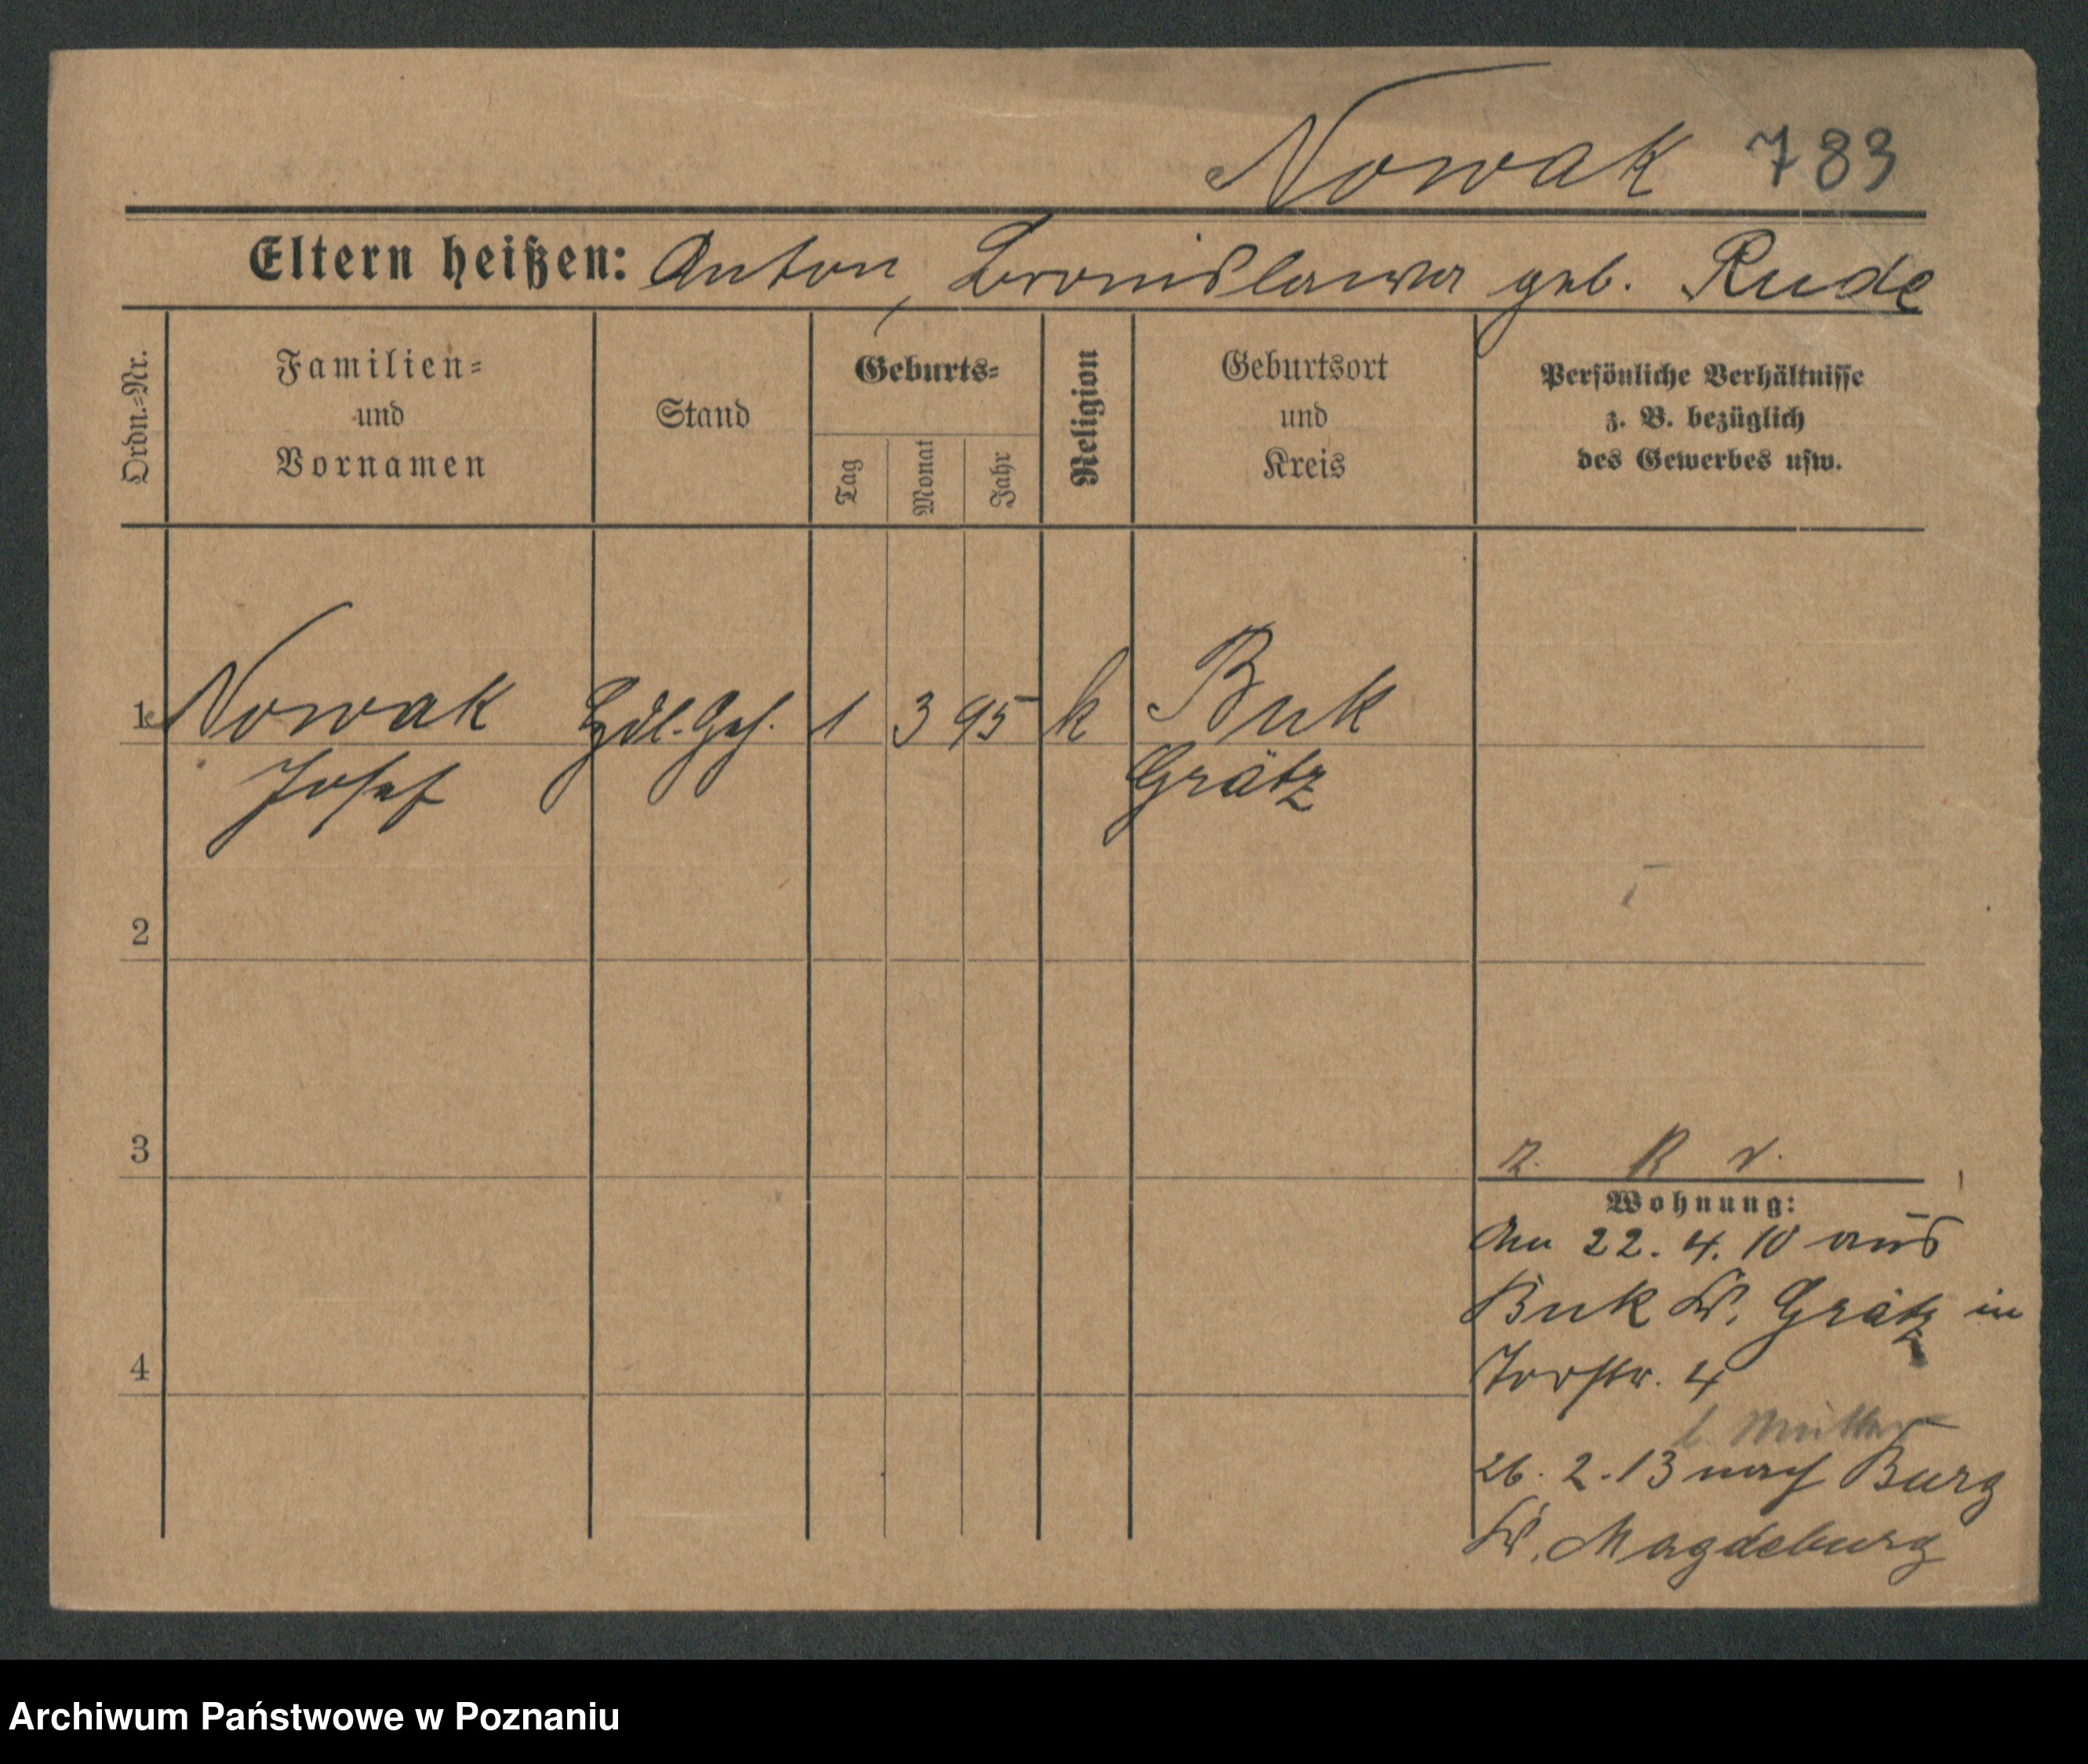 Nowak 783
Eltern heißen: Anton, Bronislawa geb. Rude
Ordn.-Nr.
Familien-
und
Vornamen
Stand
Geburts-
Tag
Monat
Jahr
Religion
Geburtsort
und
Kreis
Persönliche Verhältnisse
z. B. bezüglich
des Gewerbes usw.
1 Nowak Hdl. Geh. 1 3 95 k Buk
Josef Grätz
2
3
4
R v.
Wohnung:
Am 22. 4. 10 aus
Buk Kr. Grätz in
Torstr. 4
b. Mutter
26. 2. 13 nach Burg
Kr. Magdeburg
Archiwum Państwowe w Poznaniu